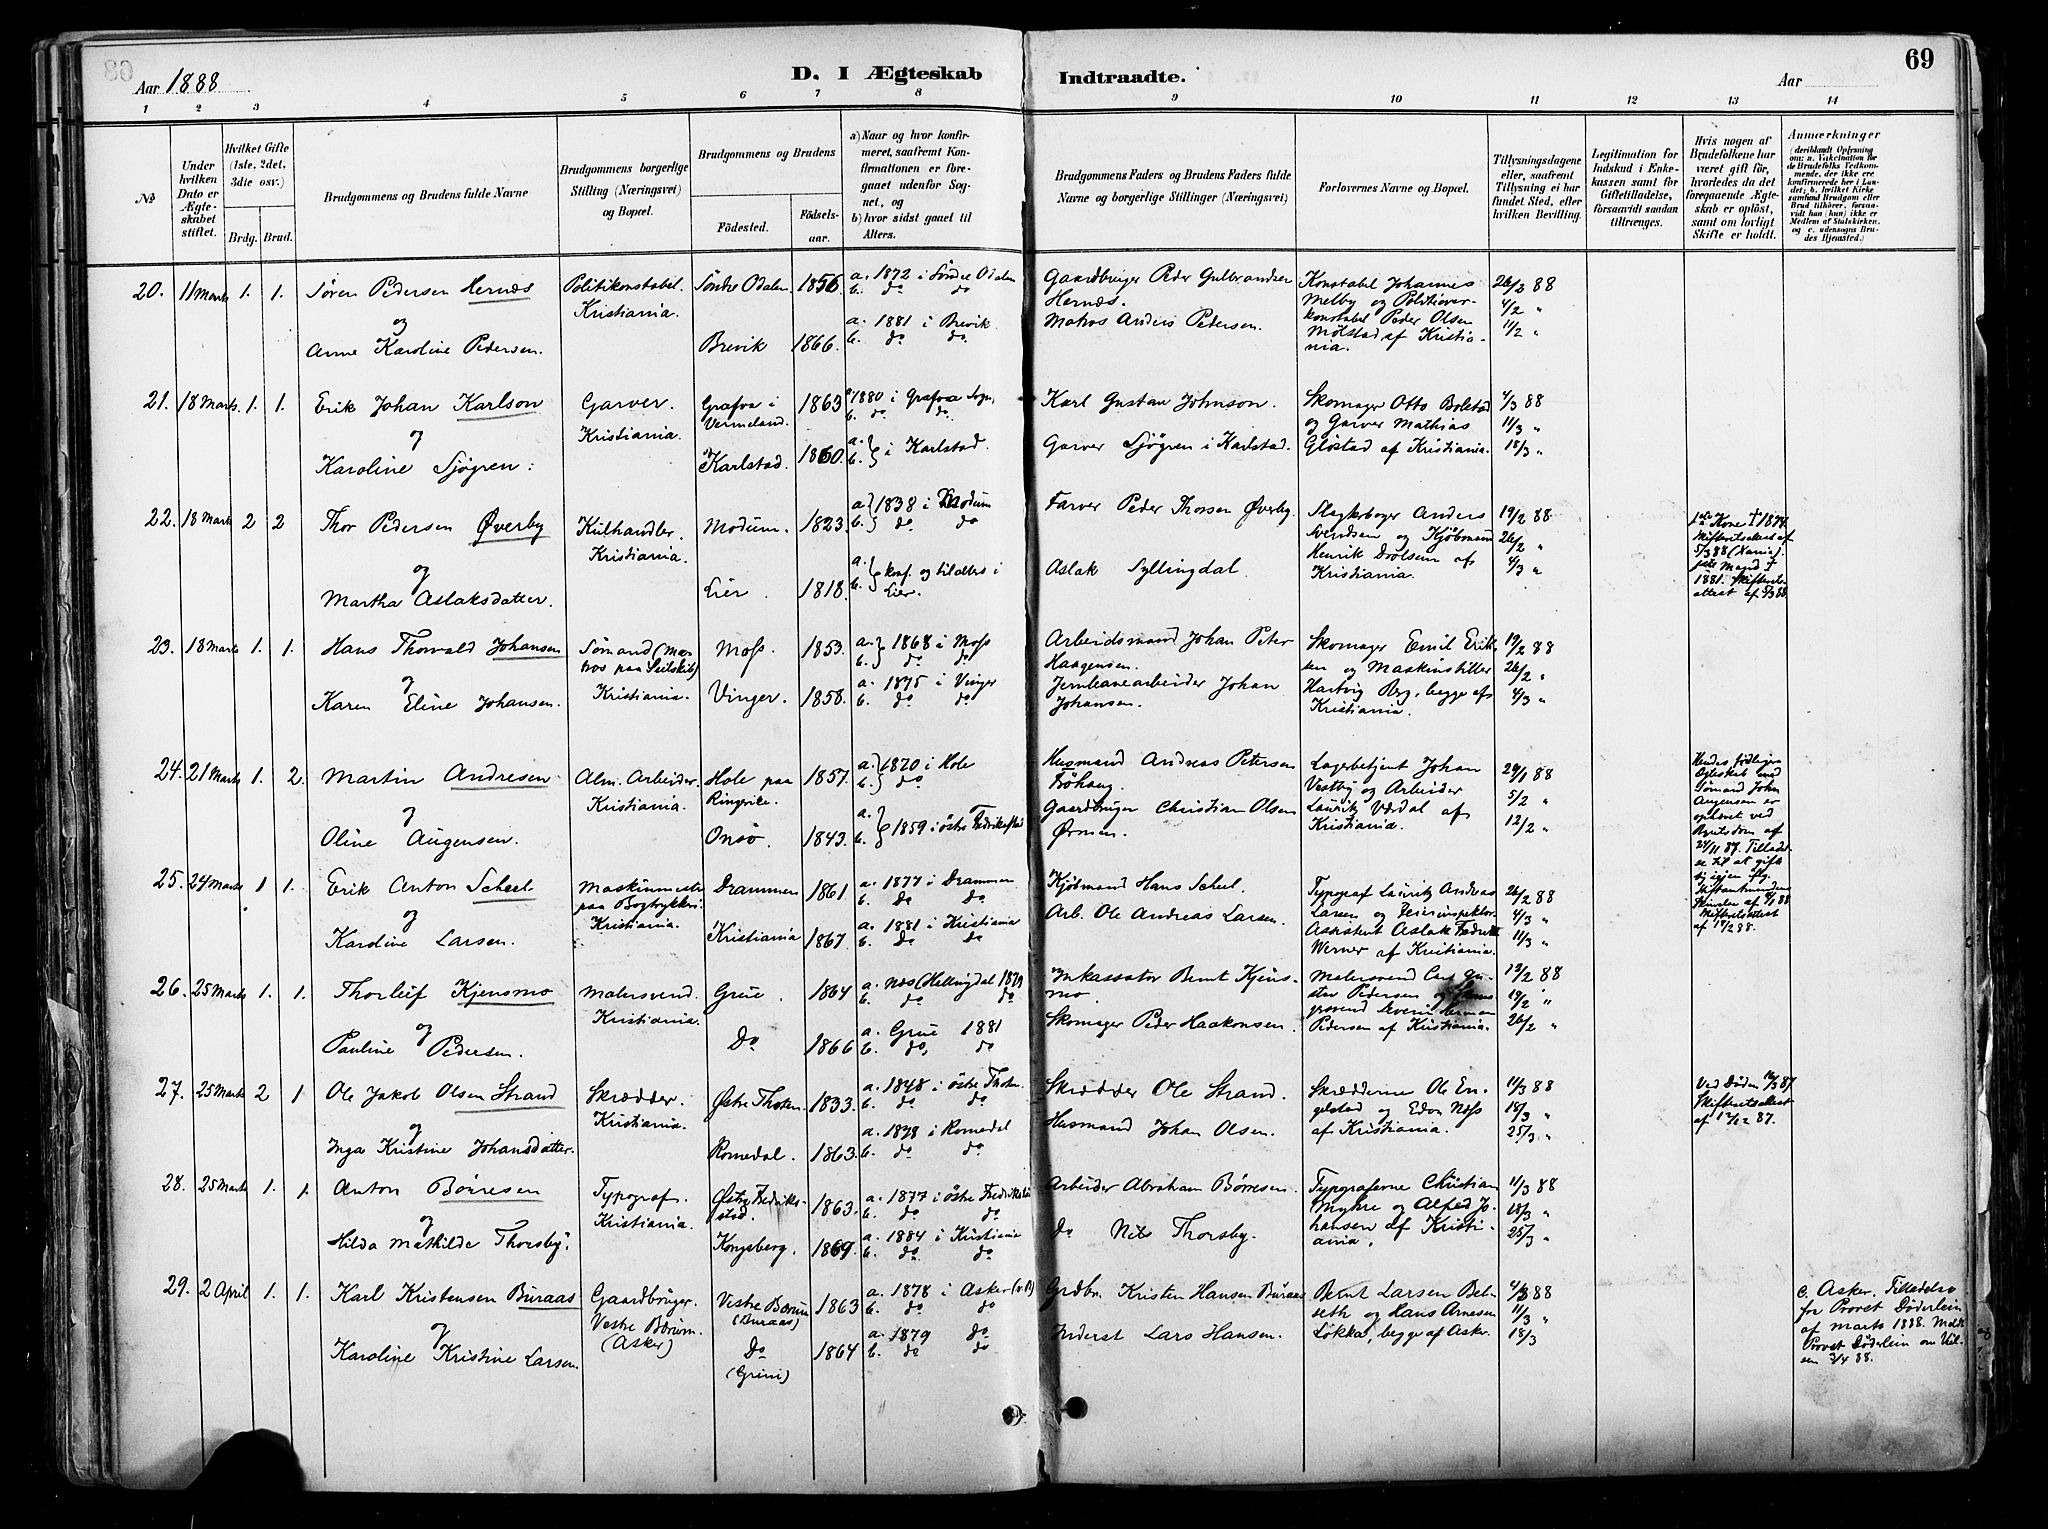 69
Aar 1888
D. I Ægteskab Indtraadte.
Aar
1 2 3 4 5 6 7 8 9 10 11 12 13 14
No
Under hvilken Dato er Ægteskabet stiftet.
Hvilket Gifte (1ste, 2det, 3die osv.)
Brdg. Brud.
Brudgommens og Brudens fulde Navne
Brudgommens borgerlige Stilling (Næringsvei) og Bopæl.
Brudgommens og Brudens
Födested. Födselsaar.
a) Naar og hvor konfirmeret, saafremt Konfirmationen er foregaaet udenfor Sognet, og
b) hvor sidst gaaet til Alters.
Brudgommens Faders og Brudens Faders fulde Navne og borgerlige Stillinger (Næringsvei)
Forlovernes Navne og Bopæl.
Tillysningsdagene eller, saafremt Tillysning ei har fundet Sted, efter hvilken Bevilling.
Legitimation for Indskud i Enkekassen samt for Giftetilladelse, forsaavidt saadan tiltrænges.
Hvis nogen af Brudefolkene har været gift för, hvorledes da det foregaaende Ægteskab er oplöst, samt om lovligt Skifte er holdt.
Anmærkninger (deriblandt Oplysning om: a. Vakcination for de Brudefolks Vedkommende, der ikke ere konfirmerede her i Landet; b. hvilket Kirkesamfund Brudgom eller Brud tilhører, forsaavidt han (hun) ikke er Medlem af Statskirken, og c. udensogns Brudes Hjemsted.)
20. 11 Marts 1. 1. Søren Pedersen Hernæs Politikonstabel. Söndre Odalen. 1856 a. 1872 i Söndre Odalen Gaardbruger Peder Gulbrandsen Konstabel Johannes 26/2 88
Kristiania. b. do do Hernæs. Melby og Politiover- 4/2 "
og a. 1881 i Brevik. Matros Anders Pedersen. konstabel Peder Olsen 11/2 "
Anne Karoline Pedersen. Brevik 1866. b. do do Mölstad af Kristiania.
21. 18 Marts. 1. 1. Erik Johan Karlson Garver. Grafva i 1863 a. 1880 i Grafva Sogn, Karl Gustav Johnson. Skomager Otto Bolstad 4/3 88
Kristiania. Vermeland. b. do do og Garver Mathias 11/3 "
og Karlstad. 1860. a. b. i Karlstad. Garver Sjögren i Karlstad. Glöstad af Kristiania. 18/3 "
Karoline Sjøgren.
22. 18 Marts 2 2 Thor Pedersen Øverby Kulhandler. Modum. 1823. a. 1838 i Modum Farver Peder Thorsen Øverby. Anders 19/2 88
Kristiania. b. do do Svendsen og Kjöbmand 26/2 "
og Lier. 1818. a. b. konf. og til alters i Lier. Aslak Syllingdal. Henrik af 4/3 "
Martha Aslaksdatter. Kristiania.
Kone † 1874. Skifteretsattest af 5/3 88 Mand † 1881. Skifterets attest af 5/3 88
23. 18 Marts 1. 1. Hans Thorvald Johansen Sømand (Ma- Moss. 1853. a. 1868 i Moss Arbeidsmand Johan Peter Skomager Emil Erik- 19/2 88
tros paa Seilskib) b. do do Haagensen. sen og Maskinstiller 26/2 "
og Kristiania. Vinger. 1858. a. 1875 i Vinger Jernbanearbeider Johan Hartvig Berg, begge af 4/3 "
Karen Eline Johansen. b. do do Johansen. Kristiania.
24. 21 Marts 1. 2. Martin Andresen Alm. Arbeider. Hole paa 1857. a. 1870 i Hole Husmand Andreas Petersen Lagerbetjent Johan 29/1 88
Kristiania. Ringerike. b. do Vestby og Arbeider 5/2 "
og Onsö. 1843. a. b. 1859 i östre Fredrikstad Gaardbruger Christian Olsen Lauritz af 12/2 "
Oline Augensen. Ørmen. Kristiania.
Hendes Ægteskab med Sømand John Augensen er ophævet ved af 24/11 87. Tilladelse til at gifte sig igjen Skifteretsattest af 14/2 88.
25. 24 Marts 1 1. Erik Anton Scheel Maskinmester Drammen 1861 a. 1877 i Drammen Kjöbmand Hans Scheel. Typograf Lauritz Andreas 26/2 88
paa Bogtrykkeri. b. do do Larsen og Feierinspektör- 4/3 "
og Kristiania. Kristiania 1867. a. 1881 i Kristiania Arb. Ole Andreas Larsen. Assistent Aslak Fredrik 11/3 "
Karoline Larsen. b. do do Werner af Kristiania.
26. 25 Marts 1. 1. Thorleif Kjensmo Malersvend. Grue. 1864 a. Næs (Hallingdal) 1879 Inkassator Bernt Kjens- Malersvend Carl Gu- 12/2 88
Kristiania. b. do do mo. stav Pedersen og 19/2 "
og Do 1866 a. Grue 1881 Skomager Peder Haakonsen. 26/2 "
Pauline Pedersen. b. do, do Pedersen af Kristiania.
27. 25 Marts 2 1 Ole Jakob Olsen Strand Skrædder. Østre Thoten. 1833. a. 1848 i östre Thoten. Skrædder Ole Strand. Skrædderne Ole En- 11/3 88 Ved Döden 16/3 87.
og Kristiania. b. do do gelstad og Edv. Næss 18/3 " Skifteretsattest
Inga Kristine Johansdatter. Romedal. 1863. a. 1878 i Romedal Husmand Johan Olsen. af Kristiania. 25/3 " af 12/12 87.
b. do do
28. 25 Marts 1. 1. Anton Börresen Typograf. Østre Fredrik- 1863. a. 1877 i östre Fredrikstad Arbeider Abraham Börresen. Typograferne Christian 11/3 88
Kristiania. stad. b. do do Myhre og Alfred Jo- 18/3 "
og Kongsberg. 1869. a. 1884 i Kristiania Do Nils Thorsby. hansen af Kristi- 25/3 "
Hilda Mathilde Thorsby. b. do do ania.
29. 2 April 1. 1. Karl Kristensen Buraas Gaardbruger. Vestre Bærum 1863 a. 1878 i Asker (v.B) Grdbr. Kristen Hansen Buraas Bernt Larsen Bel- 4/3 88
Vestre Bærum. (Buraas) b. do do seth og Hans Arnesen 11/3 "
og (Asker) Do 1864 a. 1879 do Inderst Lars Hansen. Løkka, begge af Asker. 18/3
Karoline Kristine Larsen. (Grini) b. do do
c. Asker. Tilladelse fra Provst Døderlein af marts 1888. Meldt Provst Døderlein om Vielsen 3/4 88.